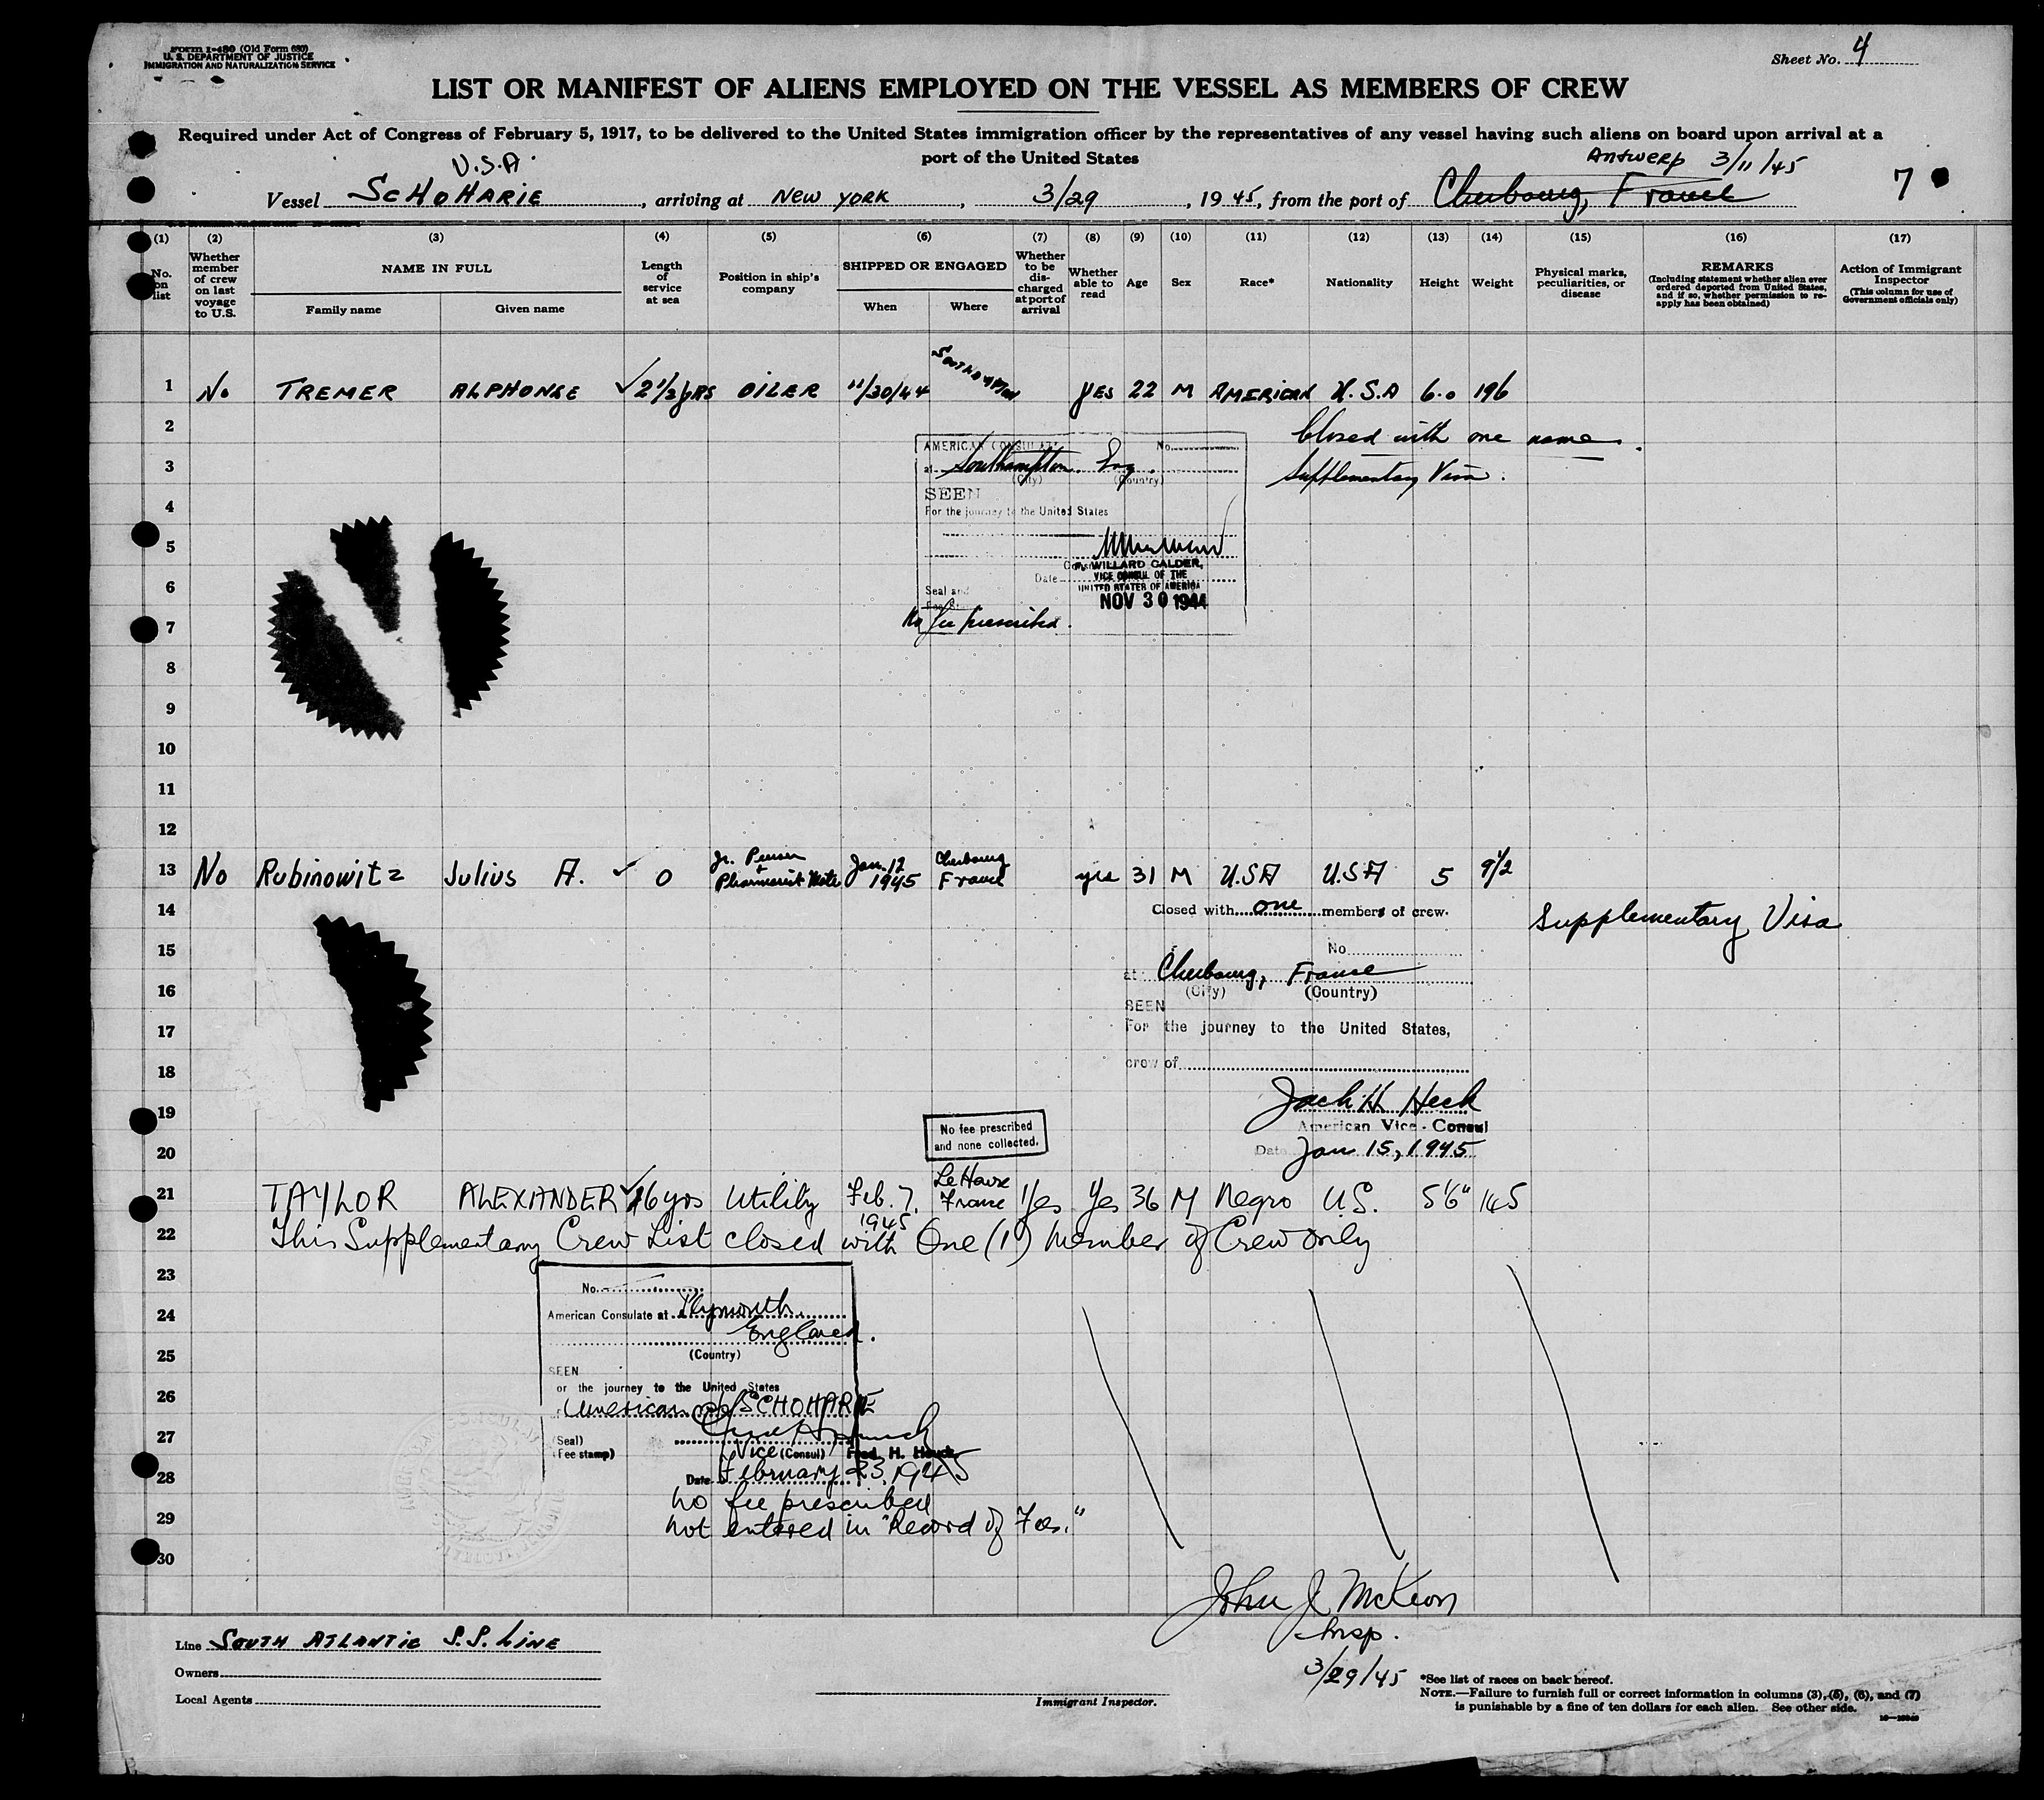 Form I-480 (Old Form 680)
U. S. DEPARTMENT OF JUSTICE
IMMIGRATION AND NATURALIZATION SERVICE
Sheet No. 4
LIST OR MANIFEST OF ALIENS EMPLOYED ON THE VESSEL AS MEMBERS OF CREW
Required under Act of Congress of February 5, 1917, to be delivered to the United States immigration officer by the representatives of any vessel having such aliens on board upon arrival at a
port of the United States
U.S.A.
Antwerp 3/11/45
Vessel SCHOHARIE, arriving at NEW YORK, 3/29, 1945, from the port of Cherbourg, France
7
(1) (2) (3) (4) (5) (6) (7) (8) (9) (10) (11) (12) (13) (14) (15) (16) (17)
No. on list
Whether member of crew on last voyage to U.S.
NAME IN FULL
Family name
Given name
Length of service at sea
Position in ship's company
SHIPPED OR ENGAGED
When
Where
Whether to be discharged at port of arrival
Whether able to read
Age
Sex
Race*
Nationality
Height
Weight
Physical marks, peculiarities, or disease
REMARKS
(Including statement whether alien ever ordered deported from United States, and if so, whether permission to reapply has been obtained)
Action of Immigrant Inspector
(This column for use of Government officials only)
1 No TREMER ALPHONSE ✓ 2 1/2 yRS OILER 11/30/44 SOUTHAMPTON yES 22 M AMERICAN U.S.A 6.0 196
2
Closed with one name.
3
Supplementary Visa.
AMERICAN CONSULATE No.
at Southampton. Eng.
(City) (Country)
SEEN
For the journey to the United States
WILLARD CALDER,
VICE CONSUL OF THE
UNITED STATES OF AMERICA
Date NOV 30 1944
Seal and
No fee prescribed.
4
5
6
7
8
9
10
11
12
13 No Rubinowitz Julius A. ✓ 0 Jr. Purser + Pharmacist Mate Jan. 12 1945 Cherbourg France yes 31 M U.S.A U.S.A 5 9 1/2
14
Closed with one members of crew.
Supplementary Visa
15
No.
at Cherbourg, France
16
(City) (Country)
SEEN
17
For the journey to the United States,
18
crew of
Jack H. Heck
19
American Vice-Consul
No fee prescribed
and none collected.
20
Date Jan 15, 1945
21 TAYLOR ALEXANDER ✓ 16 yrs Utility Feb. 7, 1945 Le Havre France Yes Yes 36 M Negro U.S. 5'6" 145
22 This Supplementary Crew List closed with One (1) Member of Crew only
23
No.
24
American Consulate at Plymouth,
England.
25
(Country)
SEEN
or the journey to the United States
26
American SCHOHARIE
27
(Seal)
Fee stamp)
Vice (Consul) Fred. H. Houck
28
Date February 23, 1945
no fee prescribed
29
not entered in "Record of Fees."
30
John J McKeon
Insp.
3/29/45
Line SOUTH ATLANTIC S.S. LINE
Owners
Local Agents
Immigrant Inspector.
*See list of races on back hereof.
NOTE.—Failure to furnish full or correct information in columns (3), (5), (6), and (7)
is punishable by a fine of ten dollars for each alien. See other side.